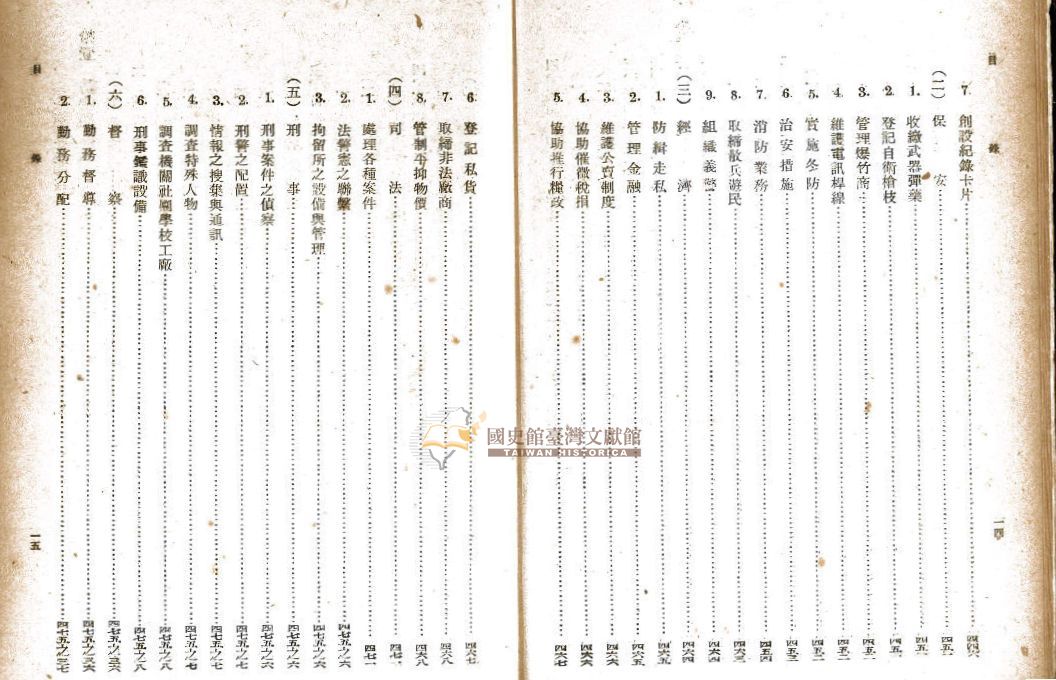 目錄
7. 創設紀錄卡片 四四六
(二)保安 四五一
1. 收繳武器彈藥 四五一
2. 登記自衛槍枝 四五一
3. 管理爆竹商 四五二
4. 維護電訊桿線 四五二
5. 實施冬防 四五二
6. 治安措施 四五三
7. 消防業務 四五四
8. 取締散兵遊民 四六三
9. 組織義警 四六四
(三)經濟 四六四
1. 防緝走私 四六五
2. 管理金融 四六五
3. 維護公賣制度 四六六
4. 協助催徵稅捐 四六六
5. 協助推行糧政 四六七
一四
6. 登記私貨 四六七
7. 取締非法廠商 四六八
8. 管制平抑物價 四六八
(四)司法 四七一
1. 處理各種案件 四七一
2. 法警憲之聯繫 四七五之六
3. 拘留所之設備與管理 四七五之六
(五)刑事 四七五之六
1. 刑事案件之偵察 四七五之六
2. 刑警之配置 四七五之七
3. 情報之搜集與通訊 四七五之七
4. 調查特殊人物 四七五之七
5. 調查機關社團學校工廠 四七五之八
6. 刑事鑑識設備 四七五之八
(六)督察 四七五之三六
1. 勤務督導 四七五之三六
2. 勤務分配 四七五之三七
目錄
一五
國史館臺灣文獻館
TAIWAN HISTORICA